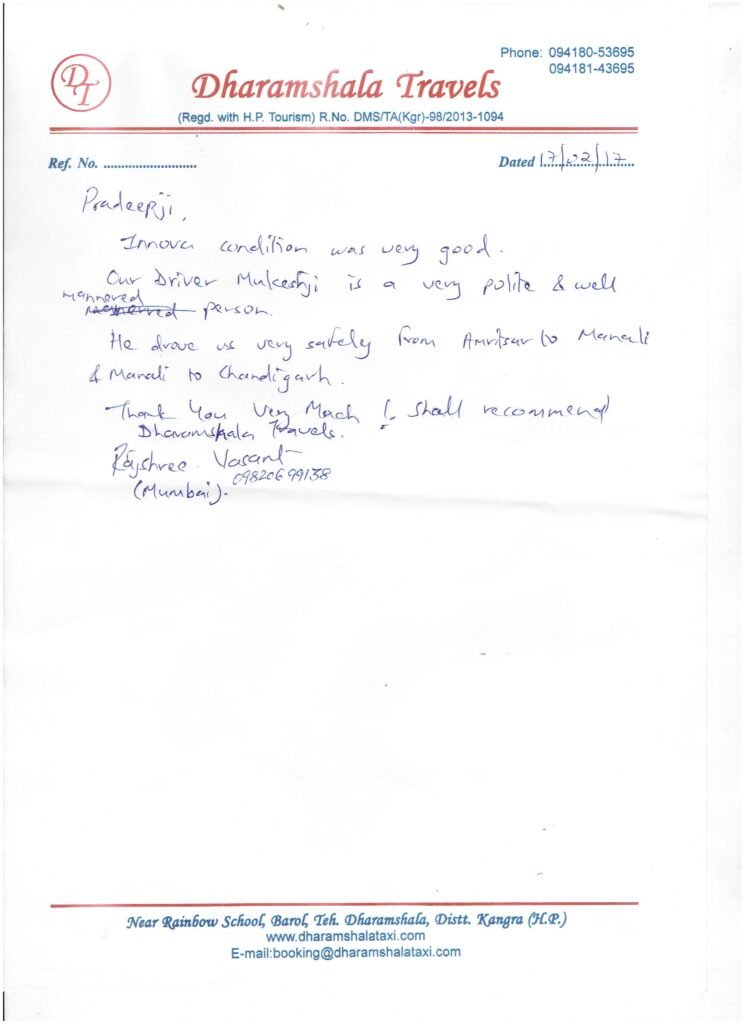 Phone: 094180-53695
094181-43695
DT
Dharamshala Travels
(Regd. with H.P. Tourism) R.No. DMS/TA(Kgr)-98/2013-1094
Ref. No. ..........................
Dated 17/02/17
Pradeepji,
Innova condition was very good.
Our Driver Mukeshji is a very polite & well
mannered
person.
He drove us very safely from Amritsar to Manali
& Manali to Chandigarh.
Thank You Very Much !. Shall recommend
Dharamshala Travels.
Rajshree Vasant
09820699138
(Mumbai).
Near Rainbow School, Barol, Teh. Dharamshala, Distt. Kangra (H.P.)
www.dharamshalataxi.com
E-mail:booking@dharamshalataxi.com